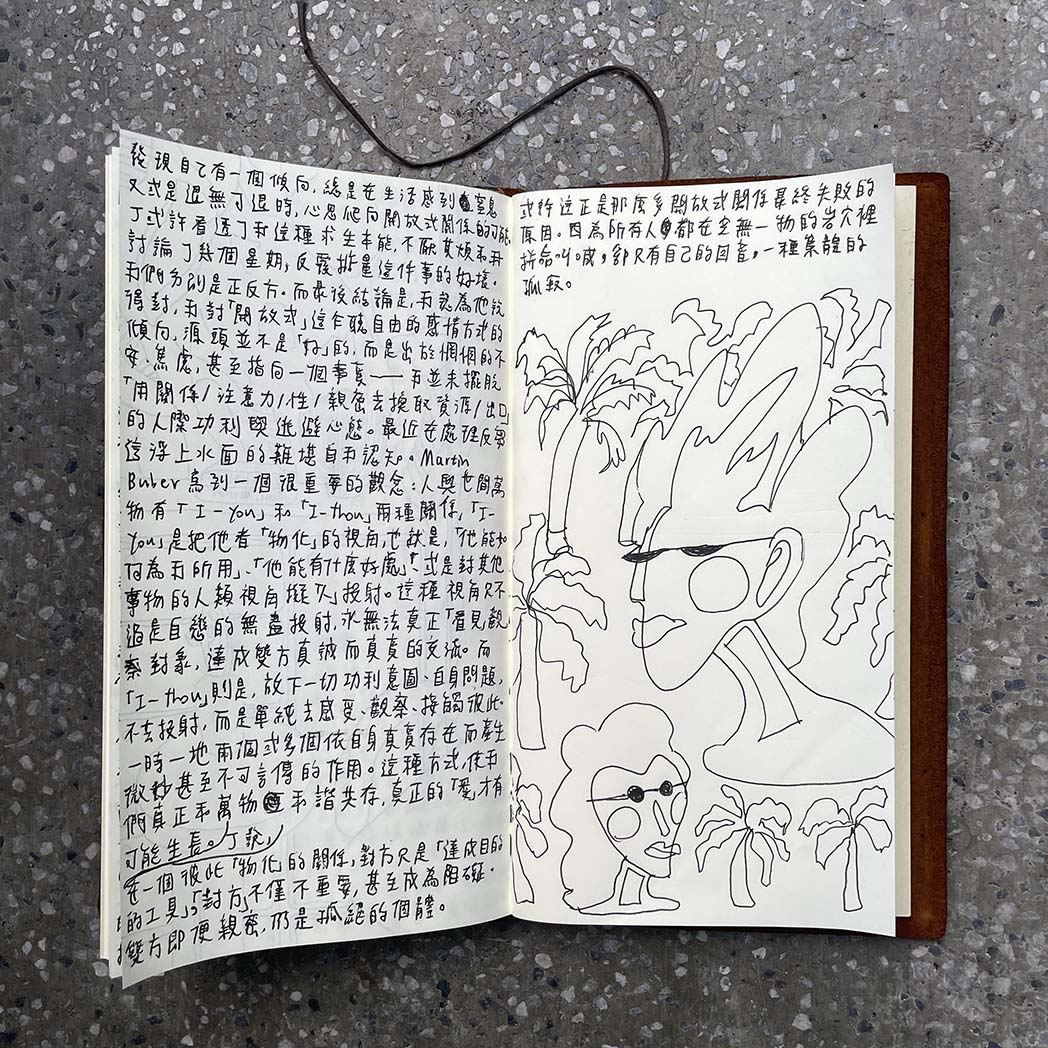 發現自己有一個傾向，總是在生活感到窒息
又或是退無可退時，心思爬向開放式關係的可能
丁或許看透了我這種求生本能，不厭其煩和我
討論了幾個星期，反覆掂量這件事的好壞。
我們分別是正反方。而最後結論是，我認為他說
得對，我對「開放式」這乍聽自由的感情方式的
傾向，源頭並不是「好」的，而是出於惘惘的不
安、焦慮，甚至指向一個事實——我並未擺脫
「用關係/注意力/性/親密去換取資源/出口」
的人際功利與逃避心態。最近在處理反芻
這浮上水面的難堪自我認知。Martin
Buber寫到一個很重要的觀念：人與世間萬
物有「I-You」和「I-thou」兩種關係，「I-
You」是把他者「物化」的視角，也就是，「他能如
何為我所用」、「他能有什麼好處」，或是對其他
事物的人類視角擬人投射。這種視角只不
過是自戀的無盡投射，永無法真正「看見」觀
察對象，達成雙方真誠而真實的交流。而
「I-thou」則是，放下一切功利意圖、自身問題，
不去投射，而是單純去感受、觀察、接觸彼此。
一時一地兩個或多個依自身真實存在而產生
微妙甚至不可言傳的作用。這種方式，使我
們真正和萬物和諧共存，真正的「愛」才有
可能生長。丁說，
在一個彼此「物化」的關係，對方只是「達成目的
的工具」，「對方」不僅不重要，甚至成為阻礙。
雙方即便親密，仍是孤絕的個體。
或許這正是那麼多開放式關係最終失敗的
原因。因為所有人都在空無一物的岩穴裡
拼命叫喊，卻只有自己的回音，一種集體的
孤寂。